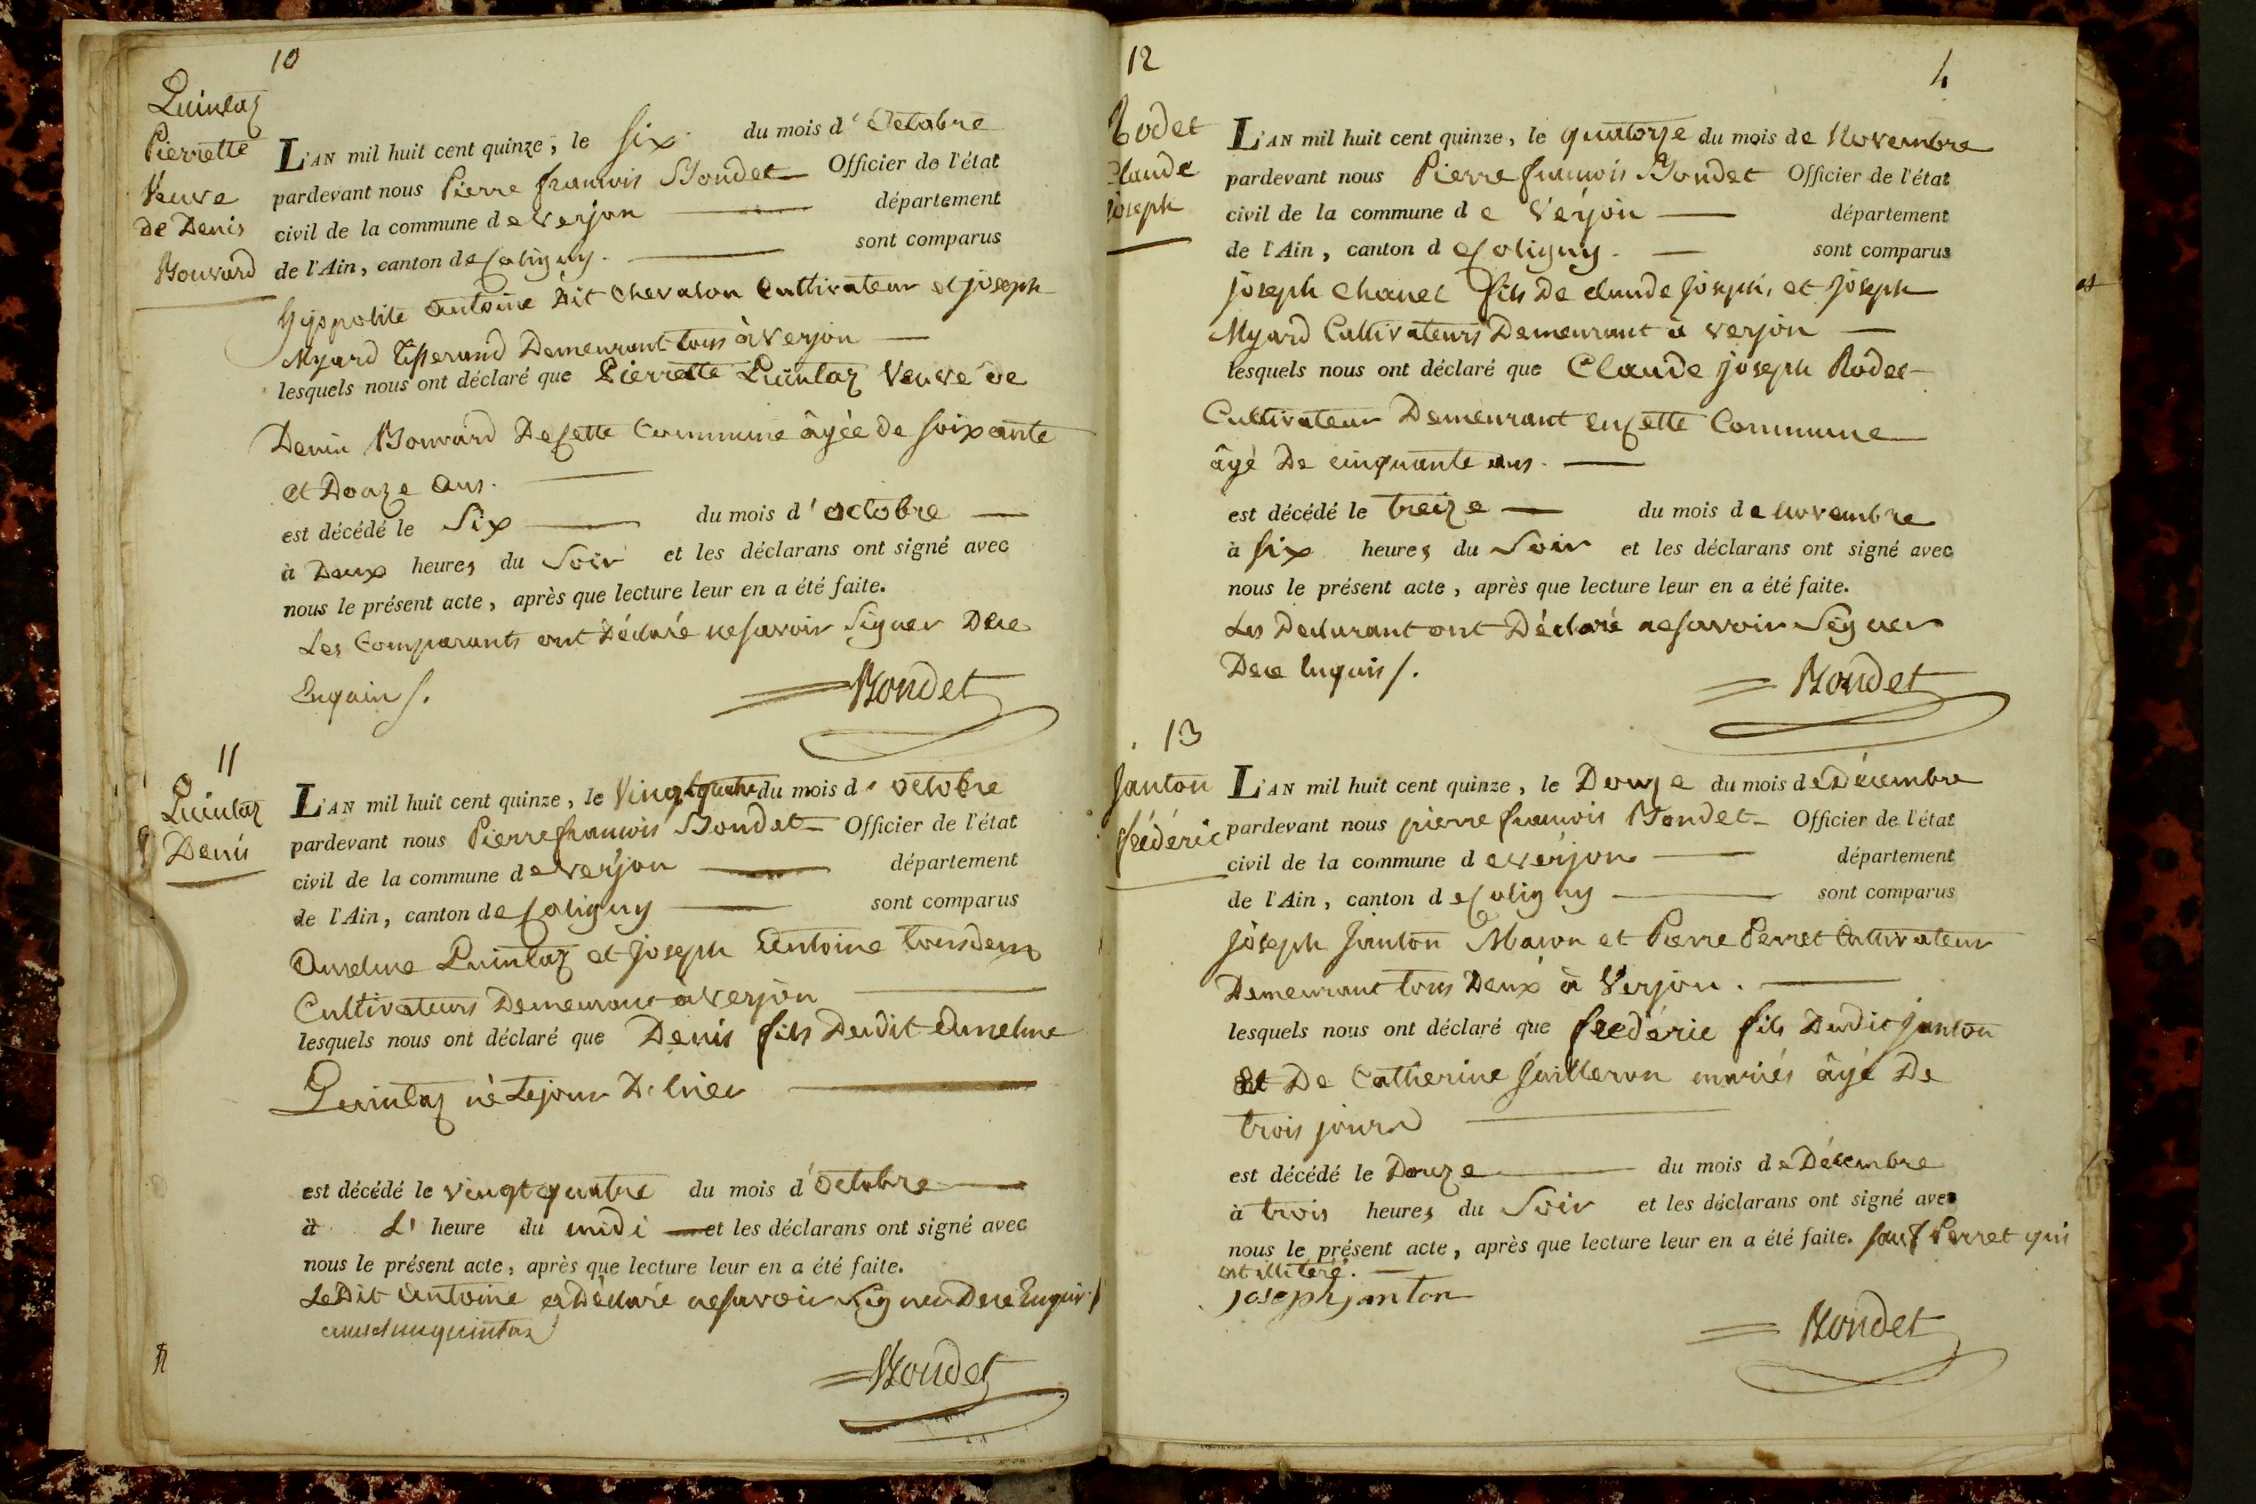 10
Quintaz
Pierrette
Veuve
de Denis
Bouvard
L'AN mil huit cent quinze, le six du mois d'Octobre
pardevant nous Pierre francois Bondet Officier de l'état
civil de la commune de Verjon département
de l'Ain, canton de Coligny. sont comparus
hyppolite antoine Dit Chevalon Cultivateur et joseph
Myard tisserand Demeurant tous à Verjon
lesquels nous ont déclaré que Pierrette Quintaz Veuve de
Denis Bouvard De Cette Commune âgée de soixante
et Douze ans.
est décédé le Six du mois d'octobre
à Deux heures du Soir et les déclarans ont signé avec
nous le présent acte, après que lecture leur en a été faite.
Les Comparants ont Déclaré ne savoir Signer De ce
Enquis /.
Bondet
11
Quintaz
Denis
L'AN mil huit cent quinze, le Vingt quatre du mois d'octobre
pardevant nous Pierre francois Bondet Officier de l'état
civil de la commune de Verjon département
de l'Ain, canton de Coligny sont comparus
Anselme Quintaz et Joseph Antoine tous deux
Cultivateurs Demeurant à Verjon
lesquels nous ont déclaré que Denis fils Dudit Anselme
Quintaz né Le jour D'hier
est décédé le vingt quatre du mois d'Octobre
à L' heure du midi et les déclarans ont signé avec
nous le présent acte, après que lecture leur en a été faite.
Le Dit Antoine a Déclaré ne savoir Signer De ce Enquis /
anselme quintaz
Bondet
12
4
Rodet
Claude
Joseph
L'AN mil huit cent quinze, le quatorze du mois de Novembre
pardevant nous Pierre francois Bondet Officier de l'état
civil de la commune de Verjon département
de l'Ain, canton de Coligny. sont comparus
joseph Chanel fils De claude joseph, et joseph
Myard Cultivateurs Demeurant à verjon
lesquels nous ont déclaré que Claude joseph Rodet
Cultivateur Demeurant en Cette Commune
âgé De cinquante ans.
est décédé le treize du mois de novembre
à six heures du Soir et les déclarans ont signé avec
nous le présent acte, après que lecture leur en a été faite.
Les Declarant ont Déclaré ne savoir Signer
De ce enquis /.
Bondet
13
Janton
frédéric
L'AN mil huit cent quinze, le Douze du mois de Décembre
pardevant nous pierre francois Bondet Officier de l'état
civil de la commune de verjon département
de l'Ain, canton de Coligny sont comparus
joseph Janton Macon et Pierre Perret Cultivateur
Demeurant tous Deux à Verjon.
lesquels nous ont déclaré que frédéric fils Dudit Janton
Et De Catherine mariés âgé De
trois jours
est décédé le Douze du mois de Décembre
à trois heures du Soir et les déclarans ont signé avec
nous le présent acte, après que lecture leur en a été faite. sauf Perret qui
est illitéré.
joseph janton
Bondet